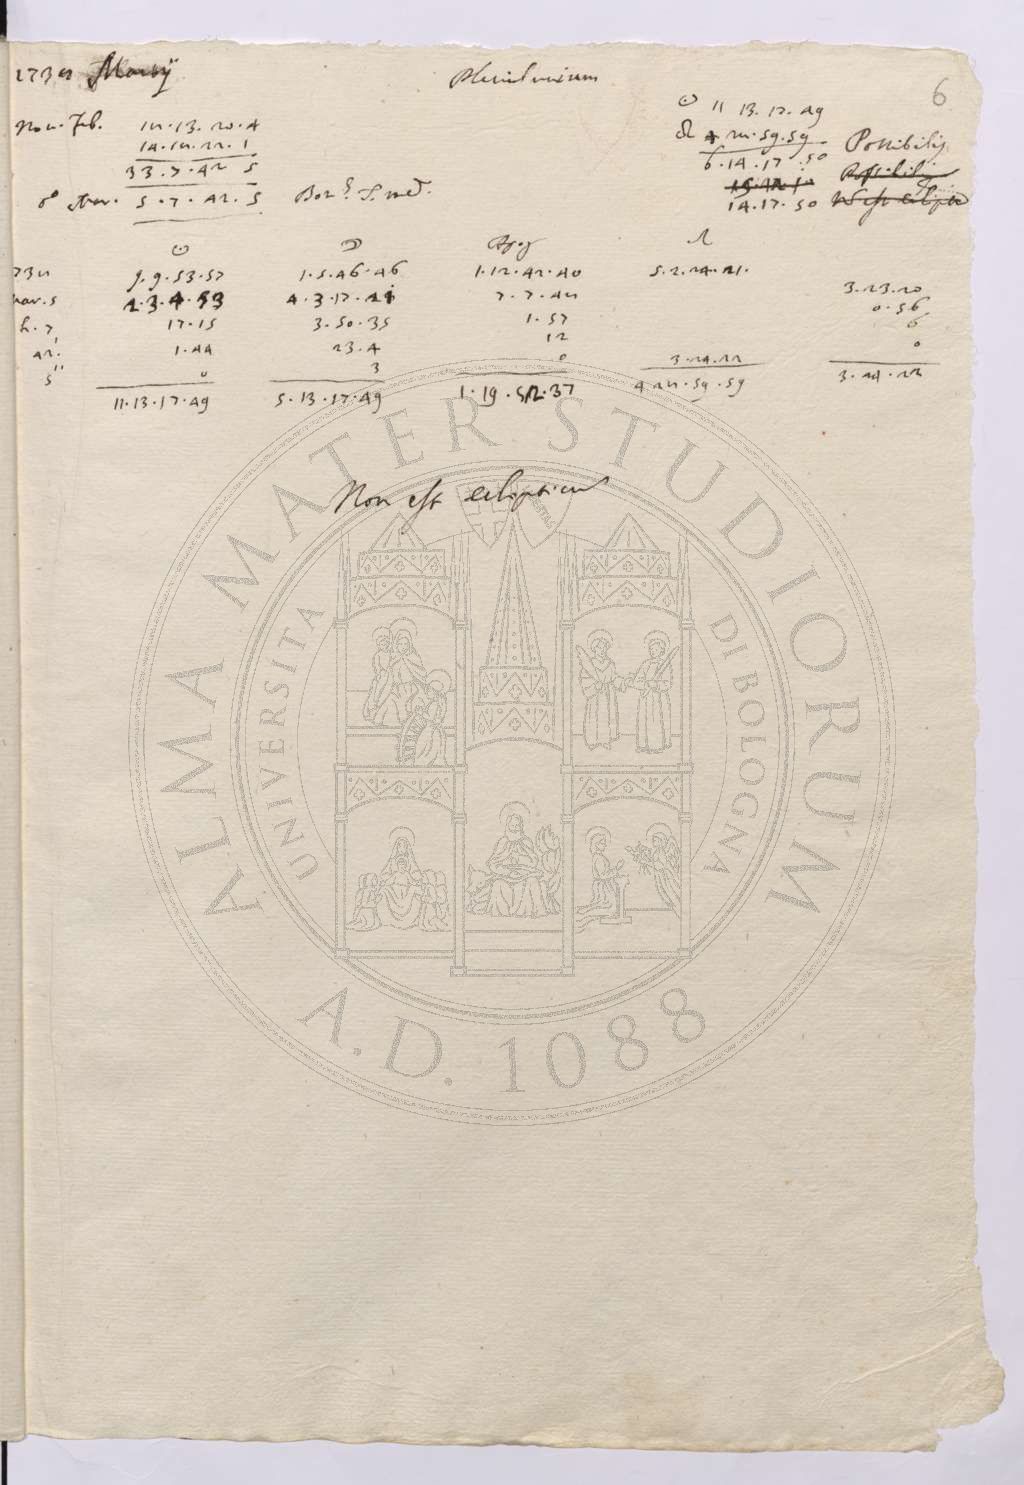 1738 Martij
Plenilunium
6
Nov. Feb. 18.13.20.4
14.18.22.1
33.7.42.5
☉ 11 13.17.49
☊ 4 28.59.59
6.14.17.50 Possibilis
14.17.50
d Mar. 5.7.42.5
☉ ☽ Apog ☊
738 9.9.53.57 1.5.46.46 1.12.42.40 5.2.24.21.
mar. 5 2.3.4.53 4.3.17.21 7.7.48 3.23.20
h. 7 17.15 3.50.35 1.57 0.56
42' 1.44 23.4 12 6
5'' 0 3 0 3.24.22 0
11.13.17.49 5.13.17.49 1.19.52.37 4.28.59.59 3.24.22
Non est eclipticum
ALMA MATER STUDIORUM
UNIVERSITA DI BOLOGNA
A.D. 1088